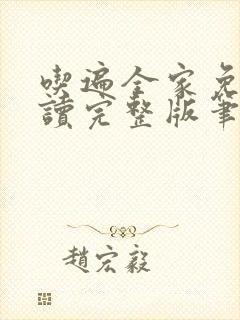 喫遍全家免
讀完整版筆
趙宏毅